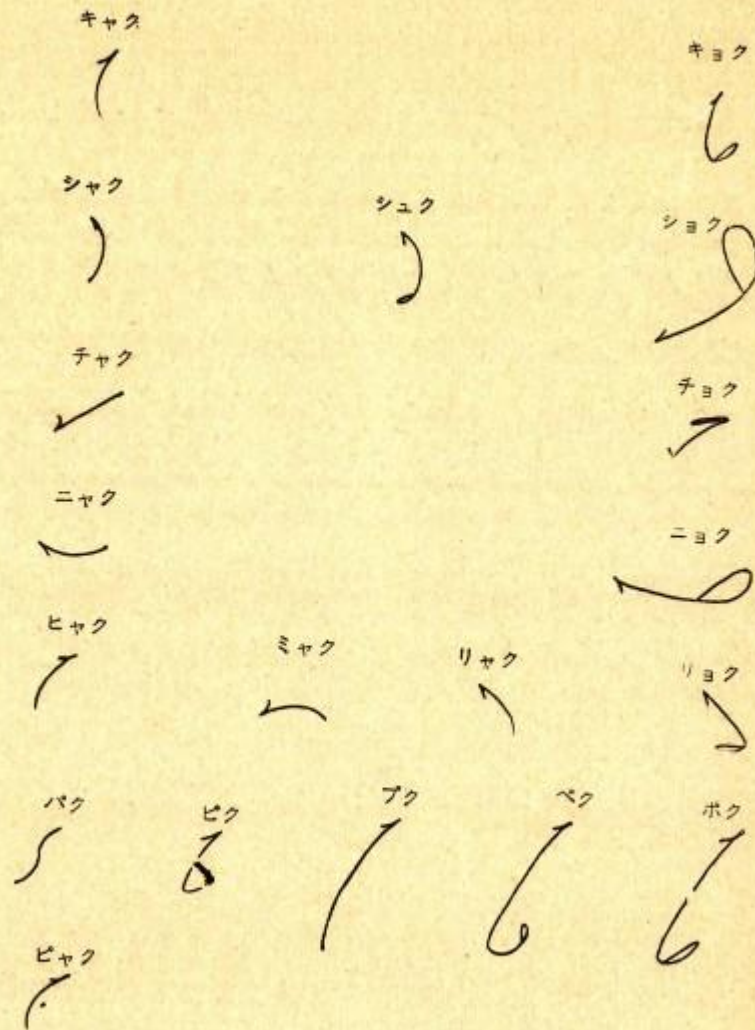 キャク キョク
シャク シュク ショク
チャク チョク
ニャク ニョク
ヒャク ミャク リャク リョク
パク ピク プク ペク ポク
ピャク